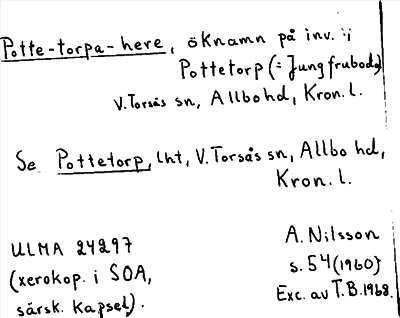 Potte-torpa-here, öknamn på inv. i
Pottetorp (= Jungfruboda)
V. Torsås sn, Allbo hd, Kron. l.
Se Pottetorp, lht, V. Torsås sn, Allbo hd,
Kron. l.
ULMA 24297
(xerokop. i SOA,
särsk. kapsel).
A. Nilsson
s. 54 (1960)
Exc. av T.B. 1968.